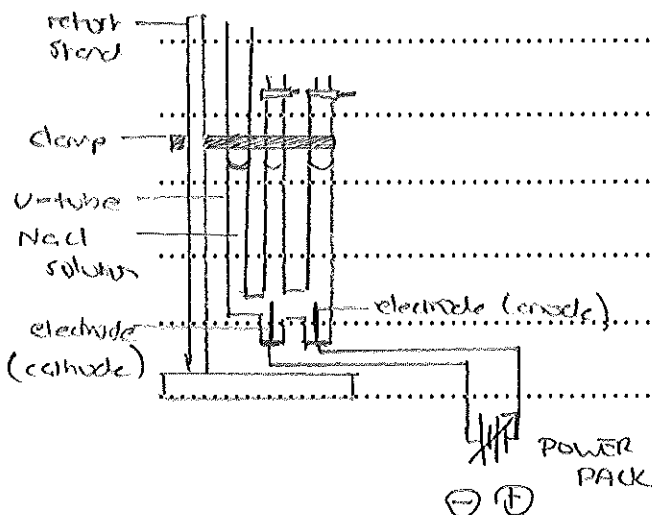 retort
stand
clamp
U-tube
NaCl
solution
electrode (anode)
electrode
(cathode)
POWER
PACK
- +